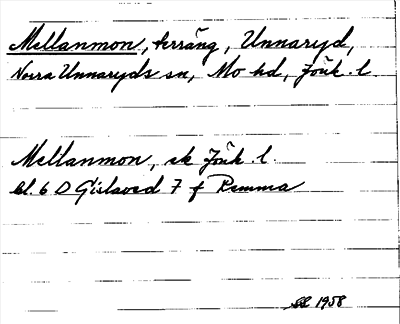 Mellanmon, terräng, Unnaryd,
Norra Unnaryds sn, Mo hd, Jönk. l.
Mellanmon, ek Jönk. l.
bl. 6 D Gislaved 7 f Remma
1958